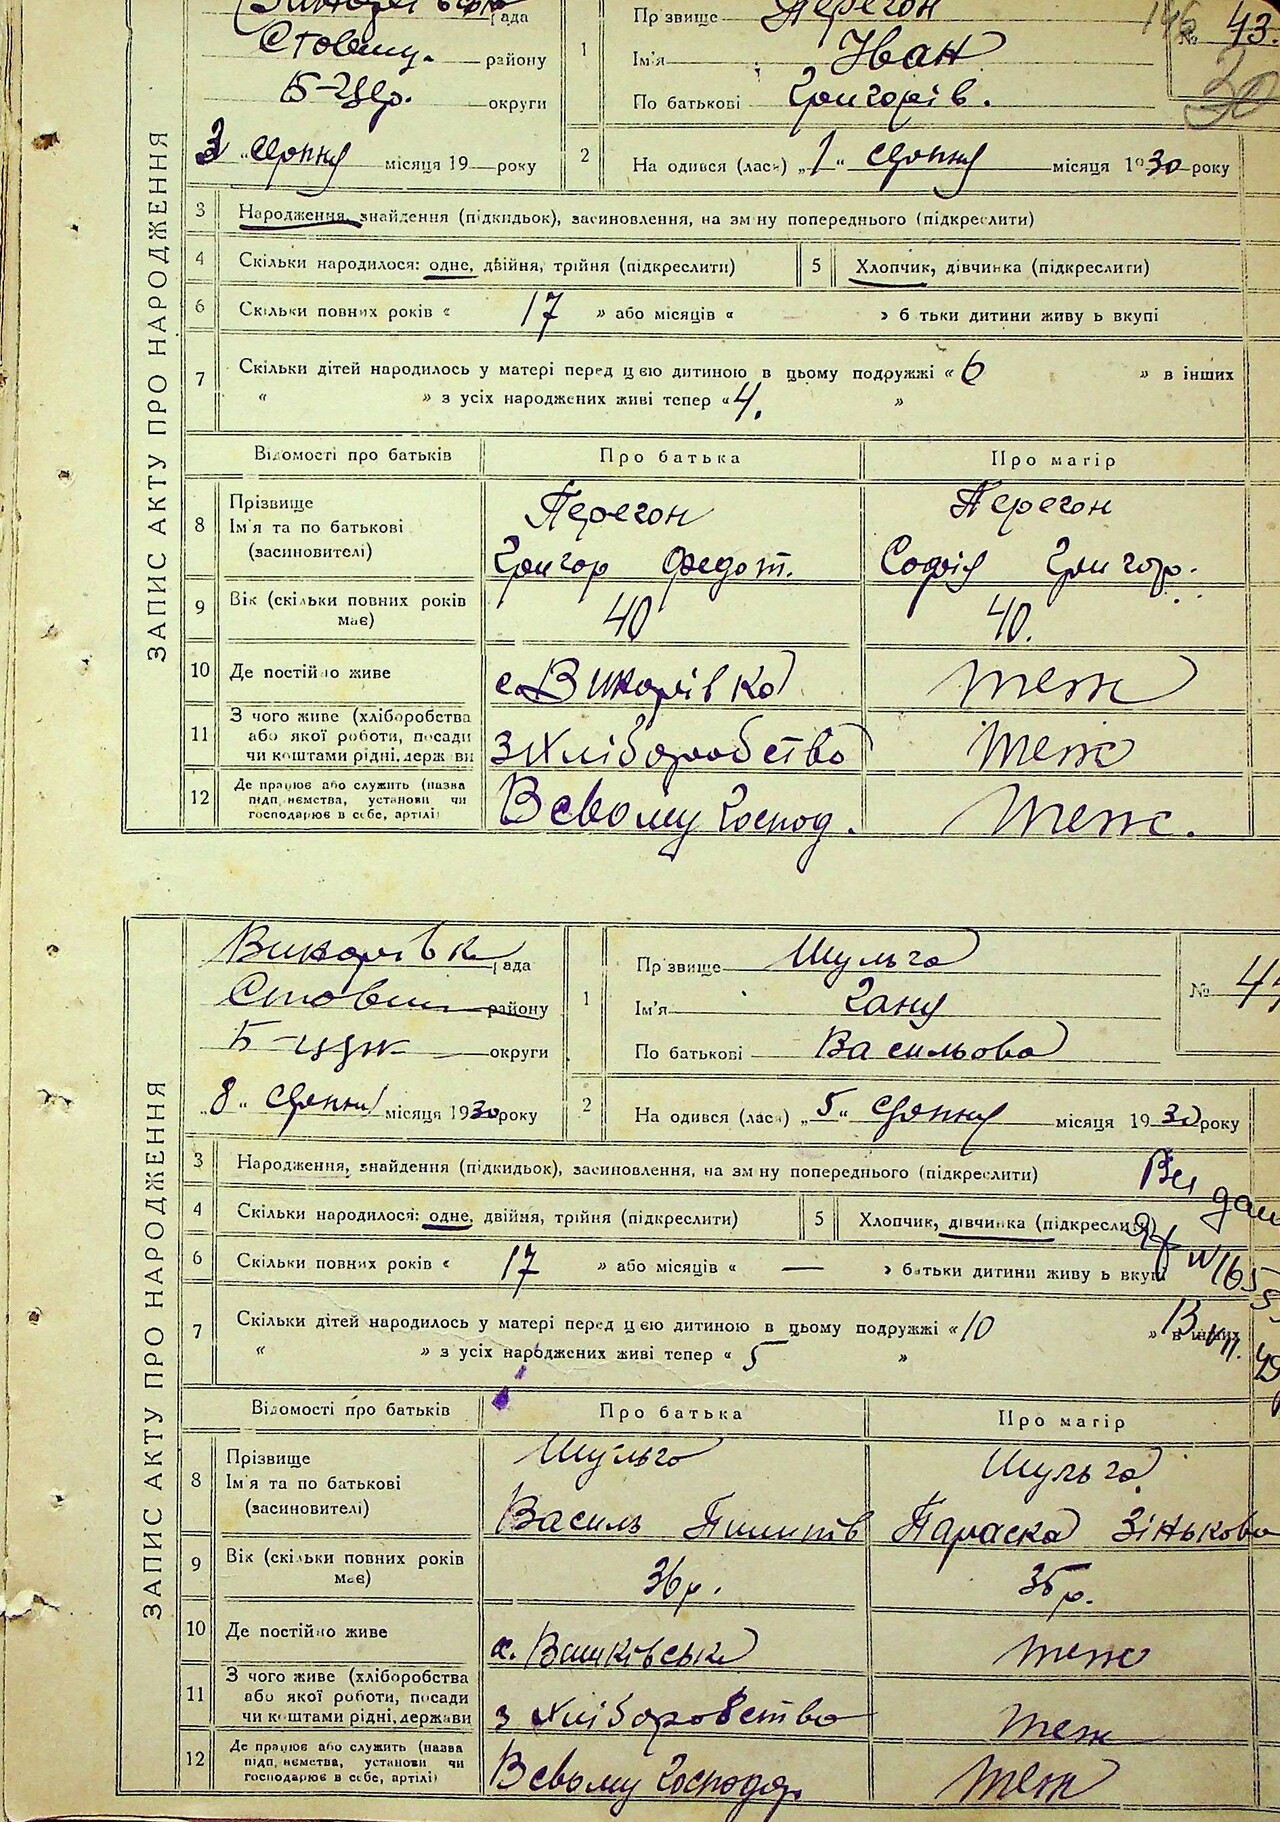 ЗАПИС АКТУ ПРО НАРОДЖЕННЯ
рада
Ставищ. району
Б-Церк. округи
3 „ серпня місяця 19 року
1
Прізвище Перегон
Ім'я Іван
По батькові Григорів.
№ 43.
146
30
2 Народився (лась) „ 1 “ серпня місяця 1930 року
3 Народження, знайдення (підкидьок), засиновлення, на зміну попереднього (підкреслити)
4 Скільки народилося: одне, двійня, трійня (підкреслити) 5 Хлопчик, дівчинка (підкреслити)
6 Скільки повних років « 17 » або місяців « » батьки дитини живуть вкупі
7 Скільки дітей народилось у матері перед цією дитиною в цьому подружжі « 6 » в інших
« » з усіх народжених живі тепер « 4. »
Відомості про батьків Про батька Про матір
8 Прізвище
Ім'я та по батькові
(засиновителі)
Перегон
Григор Федот.
Перегон
Софія Григор.
9 Вік (скільки повних років має) 40 40.
10 Де постійно живе с. Винарівка теж
11 З чого живе (хліборобства
або якої роботи, посади
чи коштами рідні, держави
з Хліборобство теж
12 Де працює або служить (назва
підприємства, установи чи
господарює в себе, артілі)
В свому Господ. теж.
ЗАПИС АКТУ ПРО НАРОДЖЕННЯ
Винарівка рада
Ставищ району
округи
„ 8 “ серпня місяця 1930 року
1
Прізвище Шульга
Ім'я Гану
По батькові Васильова
№ 44
2 Народився (лась) „ 5 “ серпня місяця 1930 року
3 Народження, знайдення (підкидьок), засиновлення, на зміну попереднього (підкреслити)
4 Скільки народилося: одне, двійня, трійня (підкреслити) 5 Хлопчик, дівчинка (підкреслити)
6 Скільки повних років « 17 » або місяців « — » батьки дитини живуть вкупі
7 Скільки дітей народилось у матері перед цією дитиною в цьому подружжі « 10 » в інших
« » з усіх народжених живі тепер « 5 »
Відомості про батьків Про батька Про матір
8 Прізвище
Ім'я та по батькові
(засиновителі)
Шульга
Василь Пилипів
Шульга
Параска Зінькова
9 Вік (скільки повних років має) 36 р. 35 р.
10 Де постійно живе теж
11 З чого живе (хліборобства
або якої роботи, посади
чи коштами рідні, держави
з Хліборобство теж
12 Де працює або служить (назва
підприємства, установи чи
господарює в себе, артілі)
В свому Господар. теж